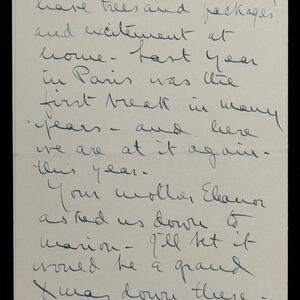 have trees and packages
and excitement at
home – Last year
in Paris was the
first break in many
years – and here
we are at it again –
this year.
Your mother Eleanor
asked us down to
Marion – I'll bet it
would be a grand
Xmas down there –